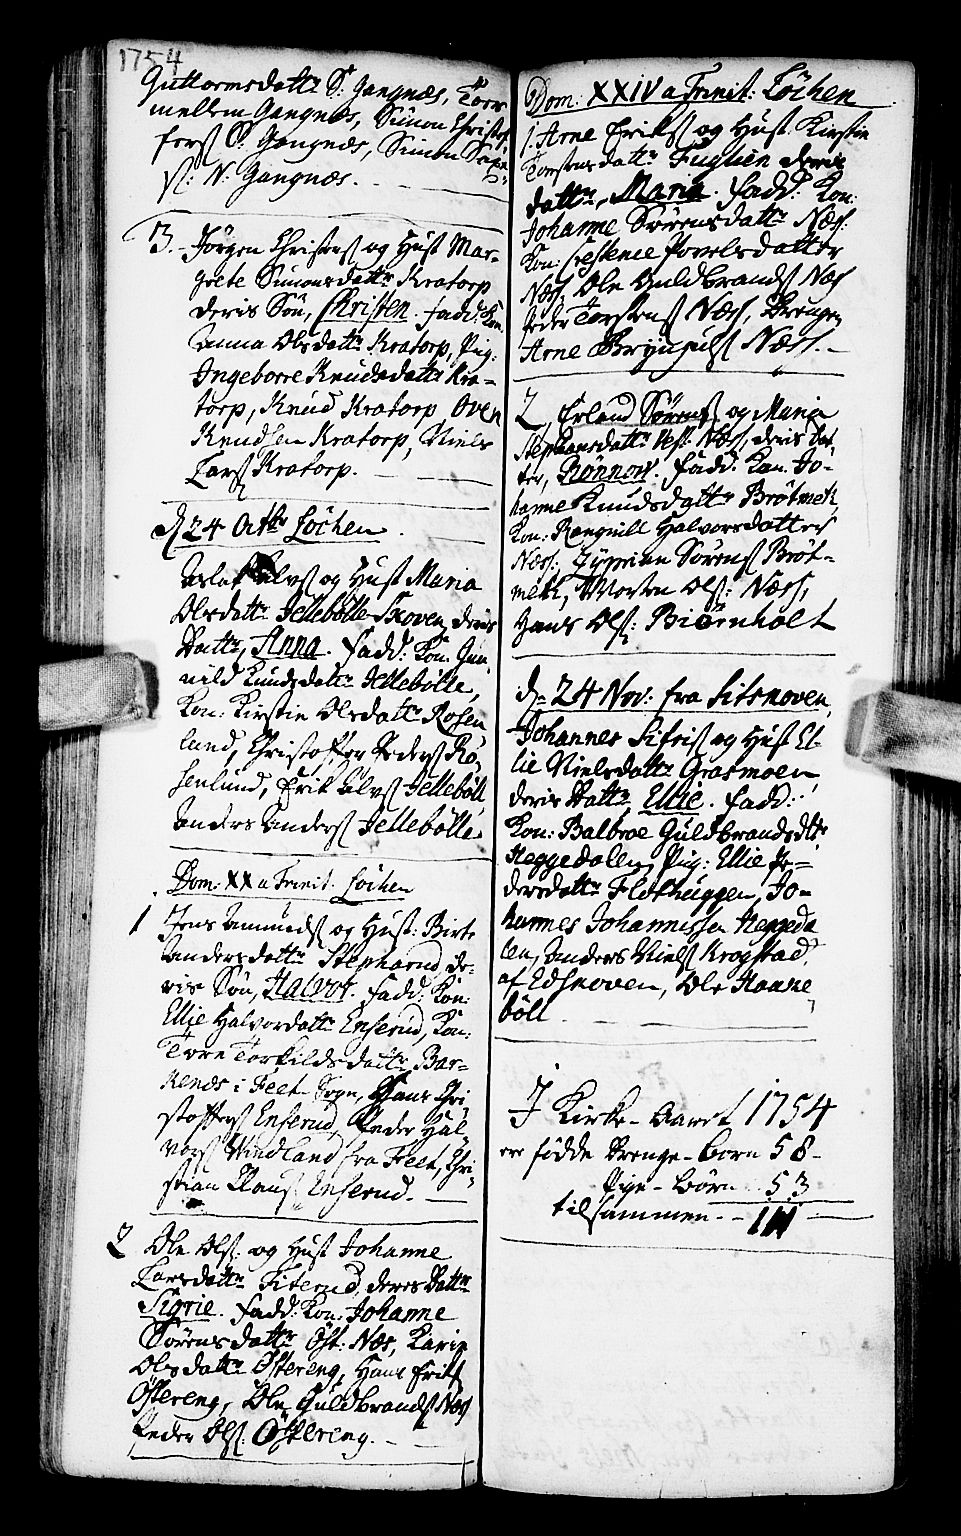 1754
Guttormsdattr S: Gangnæs, Tore
mellem Gangnæs, Simon Christof
fers S: Gangnæs, Simon
N: Gangnæs.
3. Jörgen Christens og Hust Mar-
grete Simonsdattr Kratorp
deris Sön, Christen. fadd: Kon
Anna Olsdattr Kratorp, Pig:
Ingeborre Knudsdattr Kra-
torp, Knud Kratorp, Oven
Knudsen Kratorp, Niels
Lars Kratorp.
d 24 Octbr Löchen
Aslak Elvs og Hust Maria
Olsdattr Jellebölle-Skoven, deris
Dattr, Anna. fadd: Kon: Gun
nild Knudsdattr Jellebölle,
Kon: Kirstin Olsdattr Rosen
lund, Christoffer Peders Ro,
senlund, Erik Elvs Jelleböll
Anders Anders Jellebölle.
Dom: XX a Trinit. Löchen
1 Jens Amunds og Hust: Birte
Andersdattr Stephanrud, de-
ris Sön, Halvor. fadd: Kon:
Ellie Halvordattr Enserud, Kon:
Tore Torkildsdattr Bar-
kenæs i Feet-Sogn, Hans Chri
stoffers Enserud, Peder Hal
vors Windland fra Feet, Chri-
stian Claus Enserud.
2 Ole Ols: og Hust Johanne
Larsdattr Siterud, deres Dattr
Sigrie. fadd: Kon: Johanne
Sörensdattr Öst: Næs, Karin
Olsdattr Östereng, Hans Eriks
Östereng, Ole Guldbrands Næs
Peder Ols: Östereng.
Dom: XXIV a Trinit: Löchen
1. Arne Eriks og Hust. Kirstin
Torstensdattr Fuglien deris
dattr, Maria. fadd: Kon:
Johanne Sörensdattr Næs:
Kon: Povelsdatter
Næs, Ole Guldbrands Næs
Peder Torstens Næss, Drengen
Arne Brynjuls Næss.
2, Erland Sörens og Maria
Stephansdattr Vest Næs, deris Dat
ter, Rönnow. fadd: Kon. Jo-
hanne Knudsdattr Brötmeth,
Kon: Rangnild Halvorsdatter
Næs:, Zyprian Sörens Bröt-
meth, Morten Ols: Næss,
Hans Ols: Biörnholt
d= 24 Nov: fra Sitskoven,
Johannes Sifris og Hust El-
lie Nielsdattr Grasmoen
deris Dattr, Ellie. fadd:
Kon: Balbroe Guldbrandsdtr
Heggedalen, Pig: Ellie Pe=
dersdattr Flothuggen, Jo-
hannes Johannissen Heggeda
len, Anders Niels Krogstad
af Edskoven, Ole Hanne
böll
I Kirke-Aaret 1754
ere födde Drenge-börn 58-
Pige-börn 53
tilsammen.-- 111